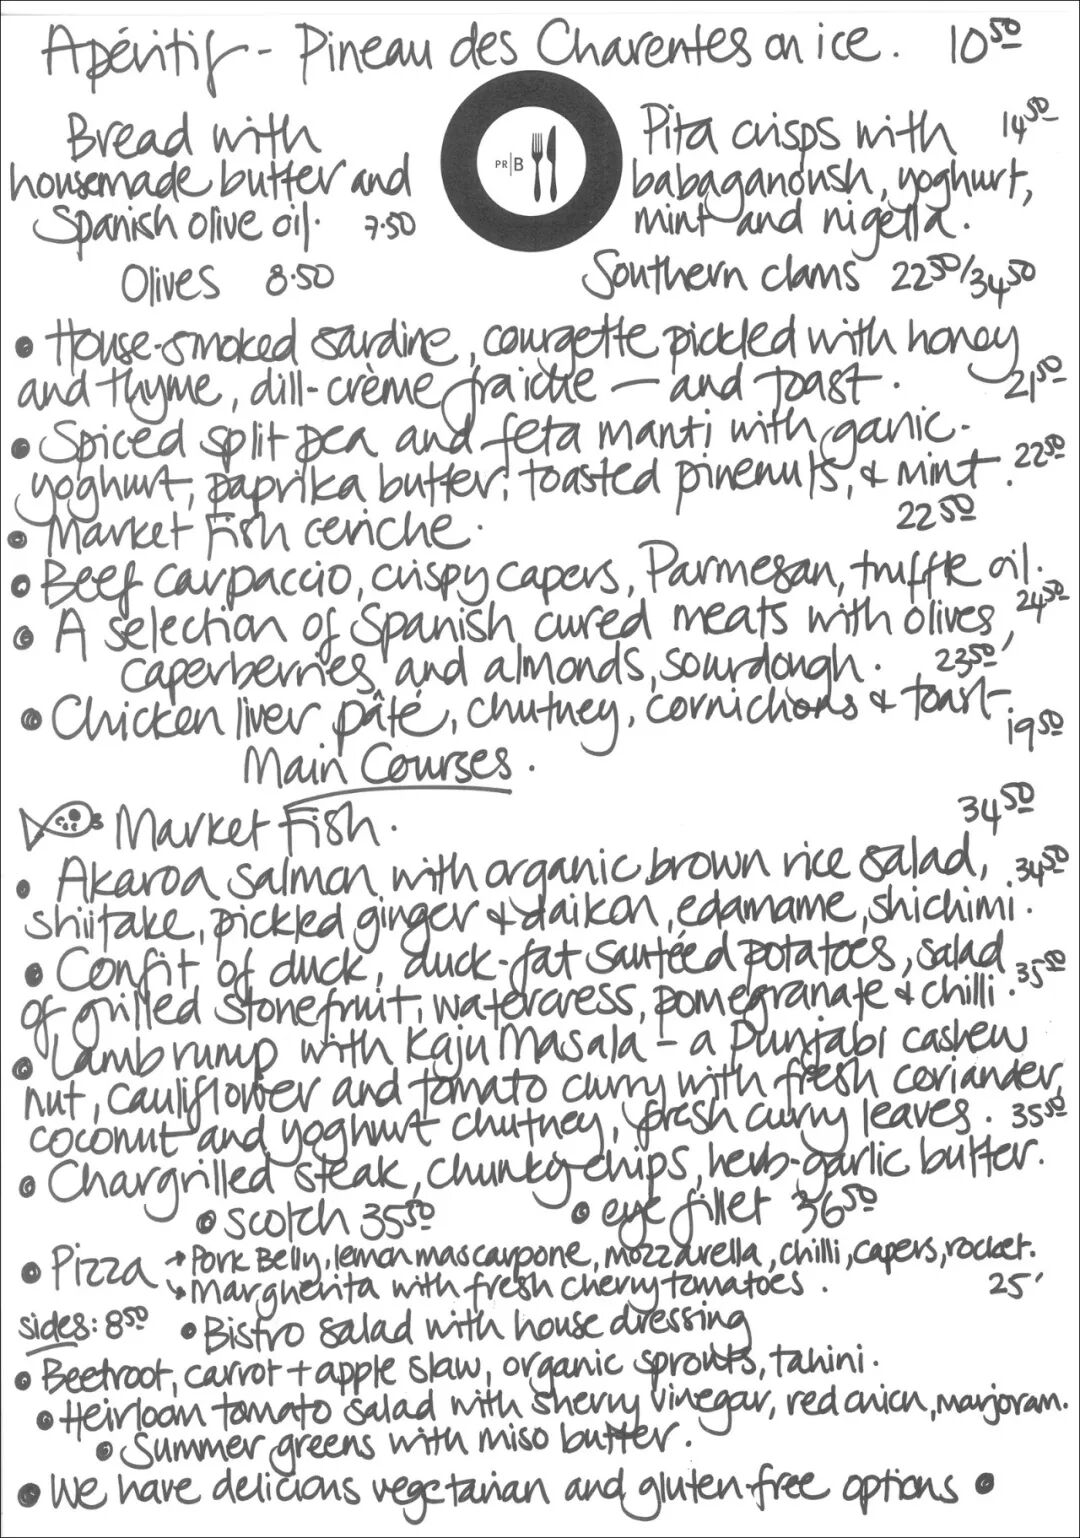 Apéritif - Pineau des Charentes on ice. 10 50
Bread with
housemade butter and
Spanish olive oil. 7.50
Olives 8.50
PR|B
Pita crisps with 14 50
babaganoush, yoghurt,
mint and nigella.
Southern clams 22 50/34 50
• House-smoked sardine, courgette pickled with honey
and thyme, dill-crème fraiche — and toast. 21 50
• Spiced split pea and feta manti with garlic-
yoghurt, paprika butter, toasted pinenuts, & mint. 22 50
• Market Fish ceviche. 22 50
• Beef carpaccio, crispy capers, Parmesan, truffle oil. 24 50
• A selection of Spanish cured meats with olives,
caperberries and almonds, sourdough. 23 50
• Chicken liver pâté, chutney, cornichons & toast. 19 50
Main Courses.
Market Fish. 34 50
• Akaroa salmon with organic brown rice salad, 34 50
shiitake, pickled ginger & daikon, edamame, shichimi.
• Confit of duck, duck-fat sautéed potatoes, salad
of grilled stonefruit, watercress, pomegranate & chilli. 35 50
• Lamb rump with Kaju Masala - a Punjabi cashew
nut, cauliflower and tomato curry with fresh coriander,
coconut and yoghurt chutney, fresh curry leaves. 35 50
• Chargrilled steak, chunky chips, herb-garlic butter.
• scotch 35 50 • eye fillet 36 50
• Pizza → Pork Belly, lemon mascarpone, mozzarella, chilli, capers, rocket.
↳ Margherita with fresh cherry tomatoes. 25
sides: 8 50 • Bistro salad with house dressing
• Beetroot, carrot + apple slaw, organic sprouts, tahini.
• Heirloom tomato salad with sherry vinegar, red onion, marjoram.
• Summer greens with miso butter.
• We have delicious vegetarian and gluten-free options •